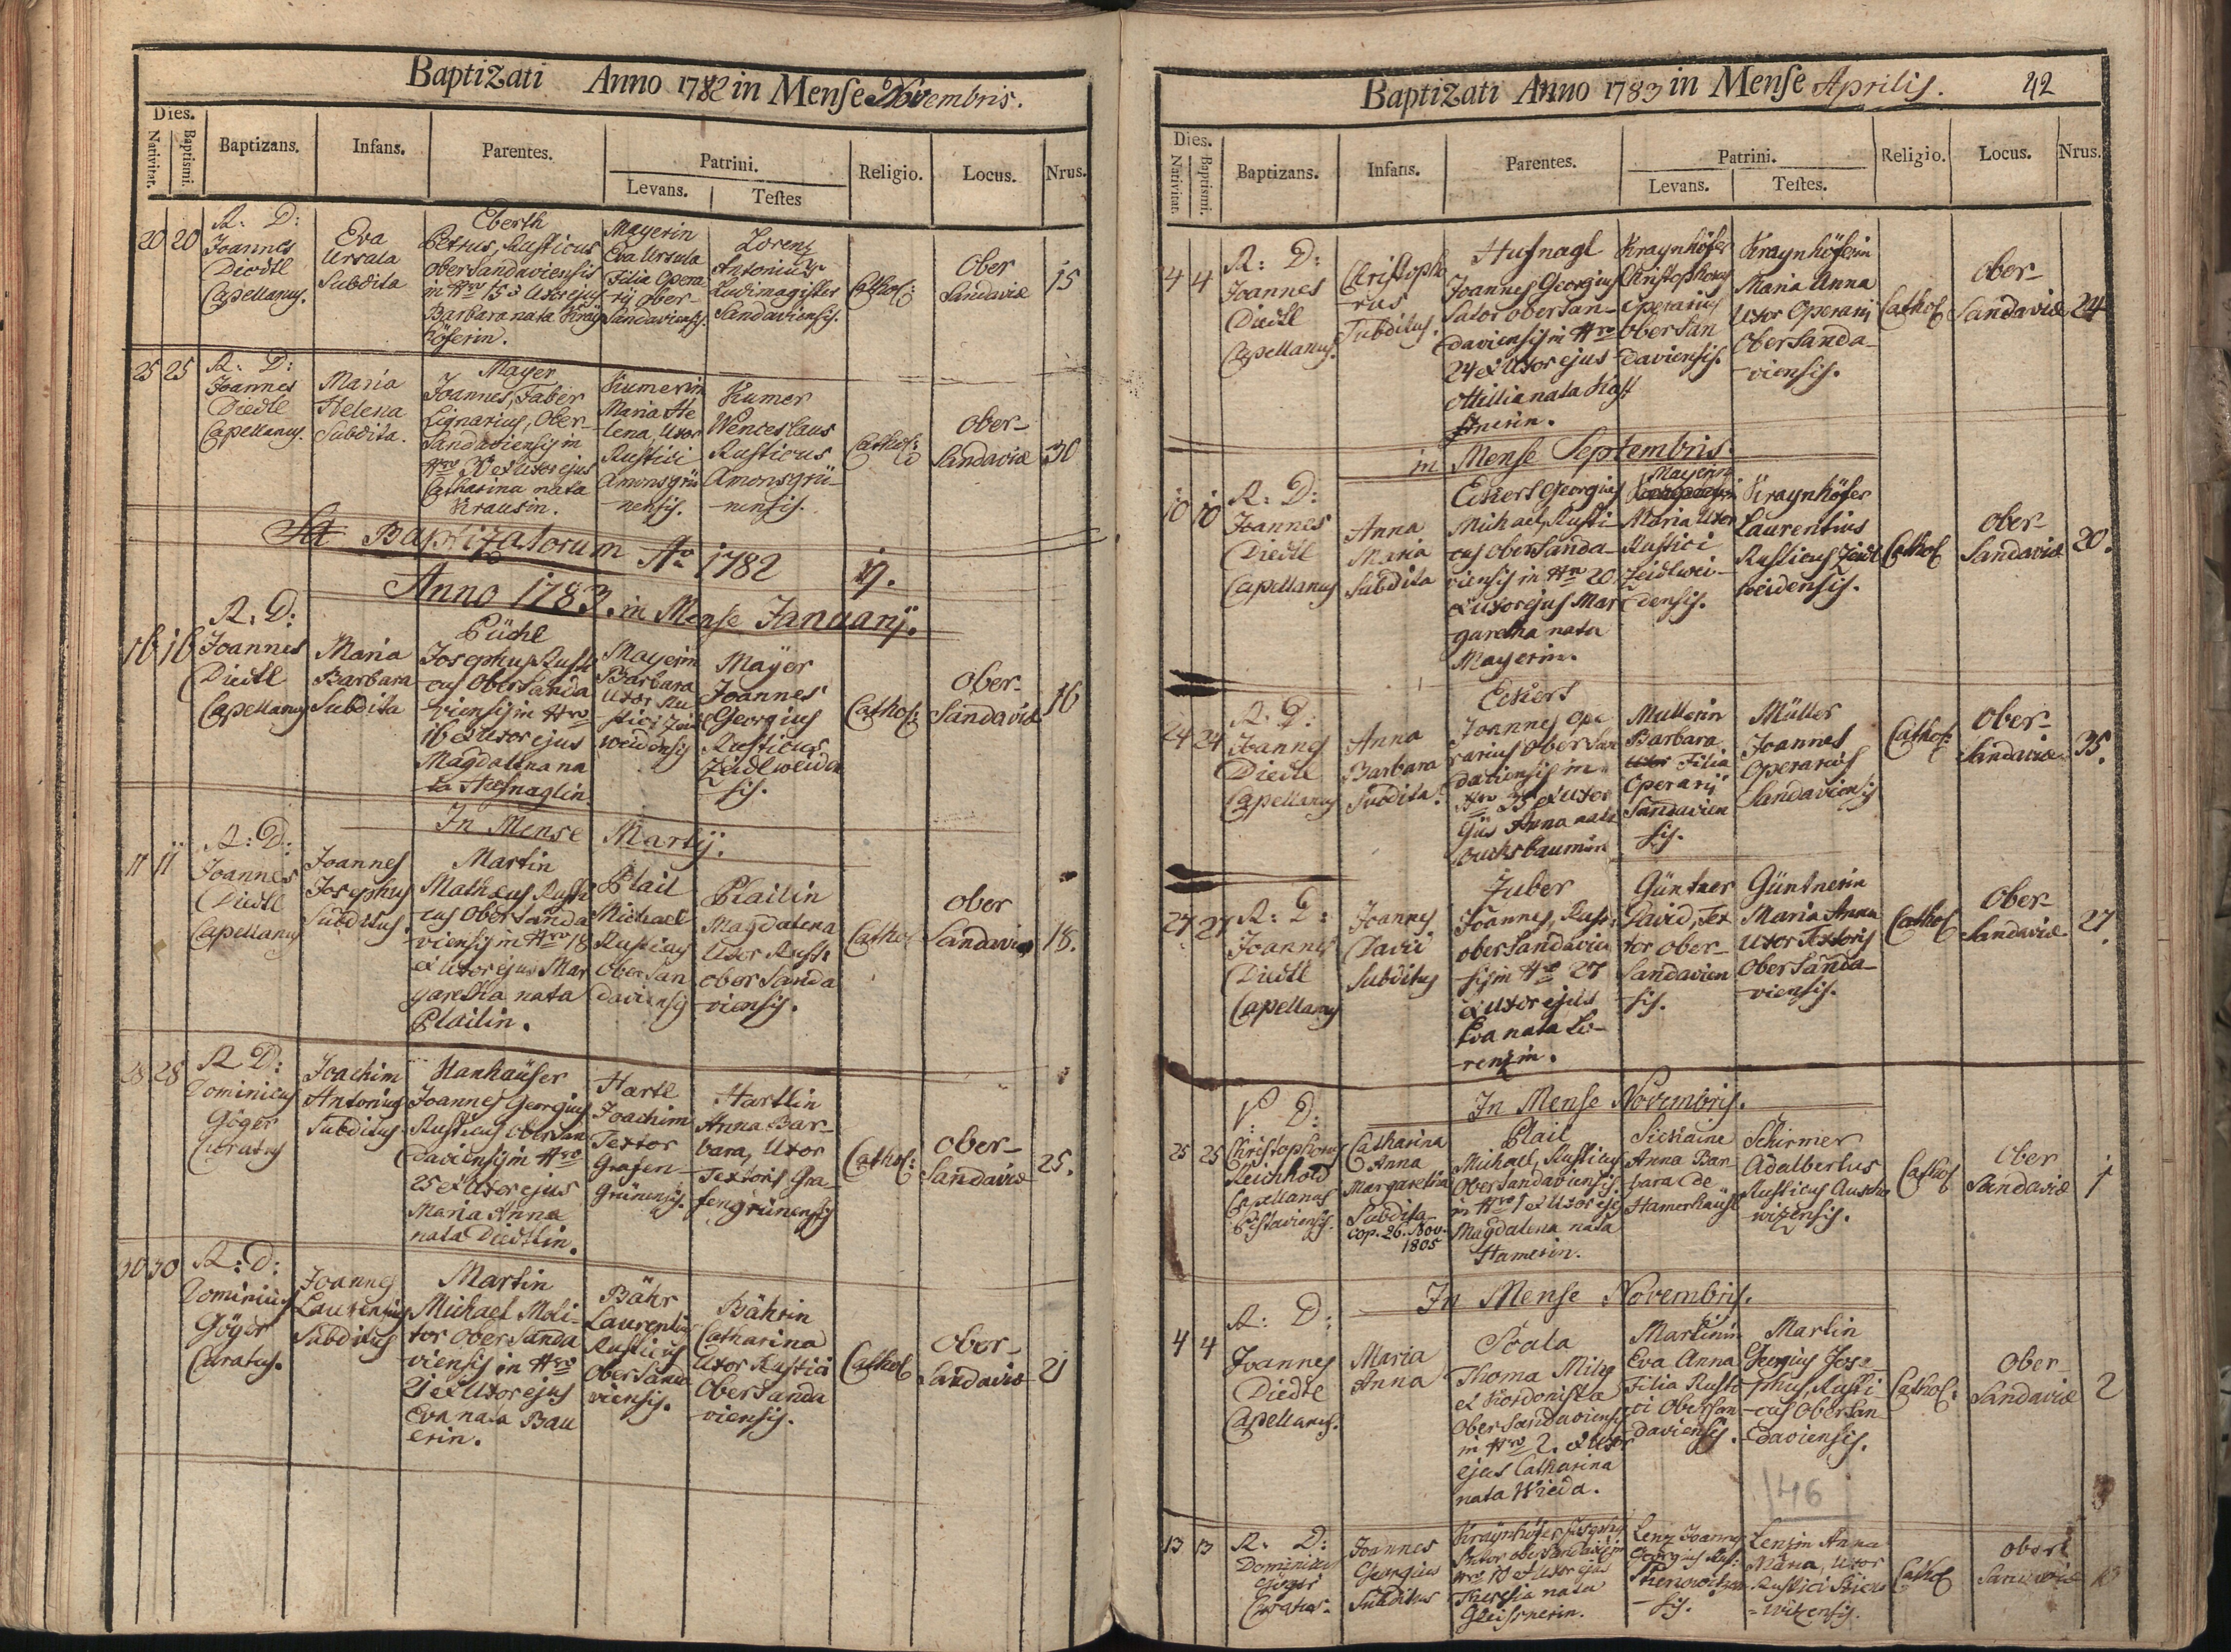 Baptizati Anno 1782 in Mense Novembris.
Dies.
Nativitat.
Baptismi.
Baptizans.
Infans.
Parentes.
Patrini.
Levans.
Testes
Religio.
Locus.
Nrus.
20 20
R: D:
Joannes
Diedtl
Capellanus.
Eva
Ursula
Subdita
Eberth
Petrus, Rusticus
oberSandaviensis
in Nro 15 & Uxor ejus
Barbara nata Krayn
höferin.
Mayerin
Eva Ursula
Filia Opera
rij ober-
Sandaviensis.
Lorenz
Antonius
Ludimagister
Sandaviensis.
Cathol:
Ober
Sandaviæ
15
25 25
R: D:
Joannes
Diedtl
Capellanus.
Maria
Helena
Subdita.
Mayer
Joannes, Faber
Lignarius, Ober-
Sandaviensis in
Nro 30 et Uxor ejus
Catharina nata
Krausin.
Kumerin
Maria He
lena, Uxor
Rustici
Amonsgrü
-nensis.
Kumer
Wenceslaus
Rusticus
Amonsgrü-
-nensis.
Cathol:
ober-
Sandaviæ
30
Baptizatorum Ao 1782 17.
Anno 1783. in Mense Januarij.
16 16
R: D:
Joannes
Diedtl
Capellanus
Maria
Barbara
Subdita
Püchl
Josephus Rusti
cus OberSanda
viensis in Nro
16 & Uxor ejus
Magdalena na
ta Hufnaglin.
Mayerin
Barbara
Uxor Ru
stici Zeid
weidensis
Mayer
Joannes
Georgius
Rusticus
Zeidlweiden
sis.
Cathol:
ober-
Sandaviæ
16
In Mense Martij.
11 11
R: D:
Joannes
Diedtl
Capellanus
Joannes
Josephus
Subditus.
Martin
Matheus Rusti
cus OberSanda
viensis in Nro 18
& Uxor ejus Mar
garetha nata
Plailin.
Plail
Michael
Rusticus
OberSan
daviensis
Plailin
Magdalena
Uxor Rusti
oberSanda
viensis.
Cathol
ober
Sandaviæ
18.
28 28
R D:
Dominicus
Göger
Curatus
Joachim
Antonius
Subditus
Hanhaüser
Joannes Georgius
Rusticus oberSan
daviensis in Nro
25 & Uxor ejus
Maria Anna
nata Diedtlin.
Hartl
Joachim
Textor
Grafen-
Grünensis.
Hartlin
Anna Bar-
bara, Uxor
Textoris Gra-
fengrünensis
Cathol:
ober-
Sandaviæ
25.
30 30
R: D:
Dominicus
Göger
Curatus.
Joannes
Laurentius
Subditus
Martin
Michael Moli-
tor oberSanda
viensis in Nro
21 & Uxor ejus
Eva nata Bau
erin.
Bähr
Laurentius
Rusticus
OberSanda
viensis.
Bährin
Catharina
Uxor Rustici
OberSanda
viensis.
Cathol
ober-
Sandaviæ
21
Baptizati Anno 1783 in Mense Aprilis.
42
Dies.
Nativitat.
Baptismi.
Baptizans.
Infans.
Parentes.
Patrini.
Levans.
Testes.
Religio.
Locus.
Nrus.
4 4
R: D:
Joannes
Diedtl
Capellanus.
Christopho
rus
Subditus.
Hufnagl
Joannes Georgius
Sator oberSan-
daviensis in Nro
24 & Uxor ejus
Ottillia nata
Kraynhöfer
Christophorus
Operarius
OberSan
daviensis.
Kraynhöferin
Maria Anna
Uxor Operarij
OberSanda-
-viensis.
Cathol
ober-
Sandaviæ
24
in Mense Septembris.
10 10
R: D:
Joannes
Diedtl
Capellanus
Anna
Maria
Subdita
Eckert Georgius
Michael, Rusti-
cus oberSanda-
viensis in Nro 20
& Uxor ejus Mar
garetha nata
Mayerin.
Mayerin
Maria Uxor
Rustici
Zeidlwei-
densis.
Kraynhöfer
Laurentius
Rusticus Zeidl
weidensis.
Cathol
ober-
Sandaviæ
20.
24 24
R. D:
Joannes
Diedtl
Capellanus
Anna
Barbara
Subdita.
Eckert
Joannes Ope
rarius OberSan
daviensis in
Nro 35 & Uxor
Anna nata
Buchsbaumin
Mullerin
Barbara
Filia
Operarij
Sandavien
sis.
Müller
Joannes
Operarius
Sandaviensis
Cathol:
ober-
Sandaviæ
35.
27 27
R: D:
Joannes
Diedtl
Capellanus
Joannes
David
Subditus
Zuber
Joannes, Rusti
oberSandavien
sis in Nro 27
& Uxor ejus
Eva nata Lo-
renzin.
Güntner
David, Tex
tor ober-
Sandavien
sis.
Güntnerin
Maria Anna
Uxor Textoris
OberSanda-
viensis.
Cathol
ober-
Sandaviæ
27.
In Mense Novembris.
25 25
P: D:
Christophorus
Reichhold
Capellanus
Catharina
Anna
Margaretha
Subdita
cop. 26. Nov.
1805
Plail
Michael, Rusticus
OberSandaviensis
in Nro 1 & Uxor ejus
Magdalena nata
Hamerin.
Anna Bar-
bara de
Hamerhäusl
Schirmer
Adalbertus
Rusticus Auscho
wizensis.
Cathol
ober
Sandaviæ
1
In Mense Novembris.
4 4
R: D:
Joannes
Diedtl
Capellanus.
Maria
Anna
Scala
Thoma Miles
et Kordonista
OberSandaviensis
in Nro 2. & Uxor
ejus Catharina
nata Wieda.
Martinin
Eva Anna
Filia Rusti
ci OberSan
daviensis.
Martin
Georgius Jose-
phus, Rusti-
cus OberSan
daviensis.
Cathol:
ober-
Sandaviæ
2
146
13 13
R: D:
Dominicus
Göger
Curatus.
Joannes
Georgius
Subditus
Kraynhöfer Josephus
Sutor oberSandaviensis
Nro 10 & Uxor ejus
Theresia nata
Gleissnerin.
Lenz Joannes
Georgius Rus:
sis.
Lenzin Anna
Maria, Uxor
Rustici
-wizensis.
Cathol
ober
Sandaviæ
10